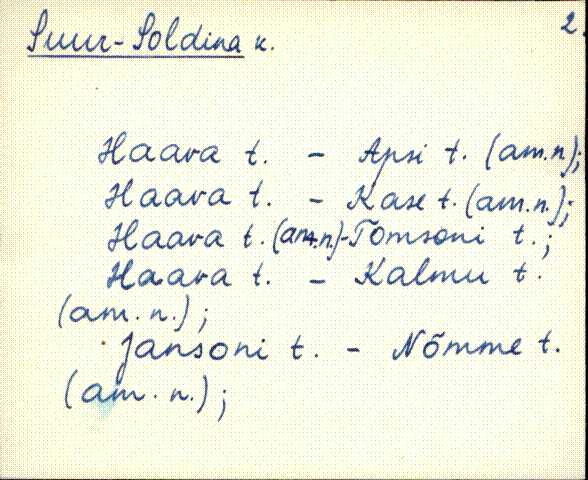 Suur-Soldina k.
2.
Haava t. - Apsi t. (am.n);
Haava t. - Kase t. (am.n.);
Haava t. (am.n.)-Tomsoni t.;
Haava t. - Kalmu t.
(am. n.);
Jansoni t. - Nõmme t.
(am. n.);